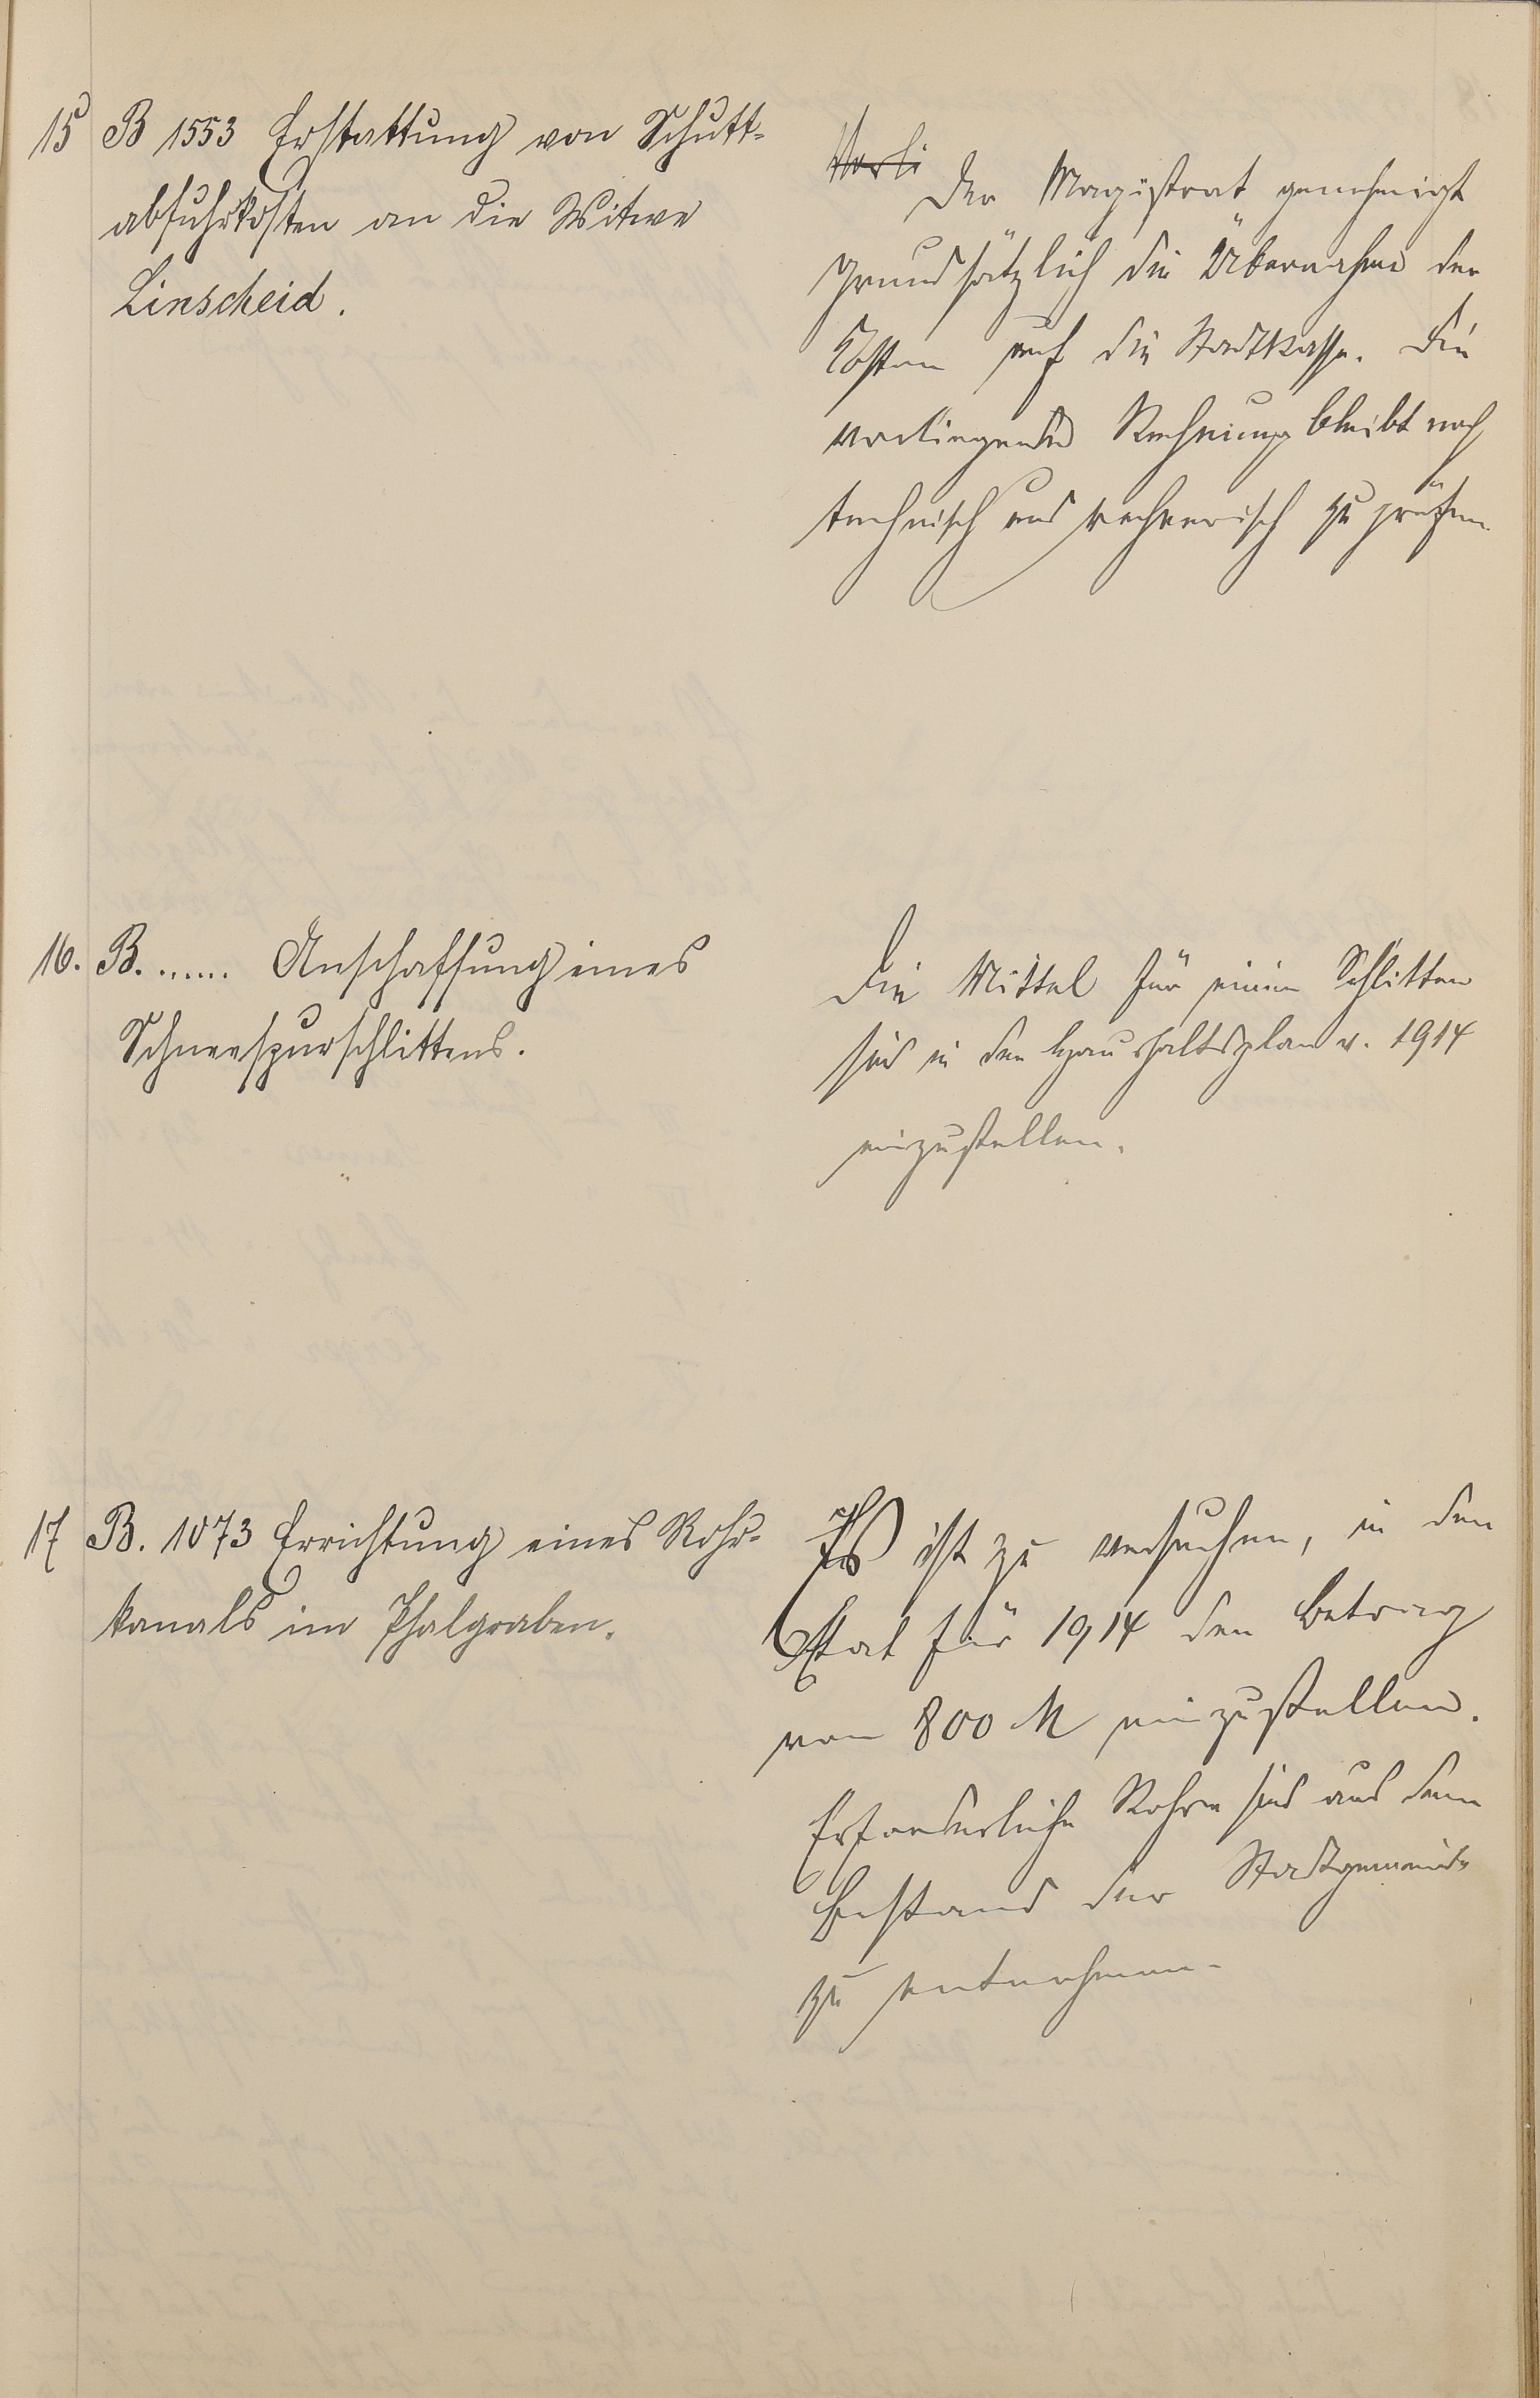 15 B 1553 Erstattung von Schutt-
abfuhrkosten an die Witwe
Linscheid.
Der Magistrat genehmigt
grundsätzlich die Übernahme der
Kosten auf die Stadtkasse. Die
vorliegende Rechnung bleibt noch
technisch und rechnerisch zu prüfen.
16. B. ...... Anschaffung eines
Schneespurschlittens.
Die Mittel für einen Schlitten
sind in den Haushaltsplan v. 1914
einzustellen.
17 B. 1073 Errichtung eines Rohr-
kanals im Thalgraben.
Es ist zu versuchen, in den
Etat für 1914 den Betrag
von 800 M einzustellen.
Erforderliche Rohre sind aus dem
Bestand der Stadtgemeinde
zu entnehmen.